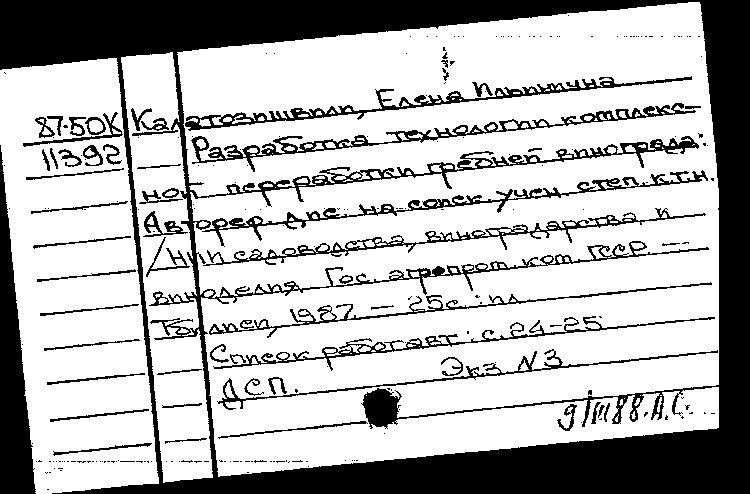 87-50К Калатозишвили, Елена Ильинична
11392 Разработка технологии комплекс-
ной переработки гребней винограда:
Автореф. дис. на соиск. учен. степ. к.т.н.
/НИИ садоводства, виноградарства и
виноделия Гос. агропром. ком. ГССР. —
Тбилиси, 1987. — 25с.: ил
Список работ авт.: с. 24-25
ДСП. Экз N3
9/III 88. А.С.